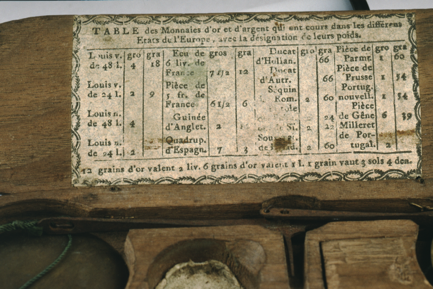 TABLE des Monnaies d'or et d'argent qui ont cours dans les différens
Etats de l'Europe, avec la désignation de leurs poids.
Louis v. gro gra Ecu de gro gra Ducat gro gra Pièce de gro gra
de 48 l. 4 18 6 liv. de d'Hollan. 66 Parme 1 60
France 7 1/2 12 Ducat Pièce de
Louis v. Pièce de d'Autr. 66 Prusse 1 54
de 24 l. 2 9 5. fr. de Sequin Portug.
France 6 1/2 Rom. 60 nouvell. 1 54
Louis n. Guinée Pièce
de 48 l. 4 d'Anglet. 2 de Gêne 6 39
Louis n. Quadrup. Milleret
de 24 l. 2 d'Espagn. 7 de 2 60 de Por-
tugal. 2
12 grains d'or valent 2 liv. 6 grains d'or valent 1 l. 1 grain vaut 3 sols 4 den.